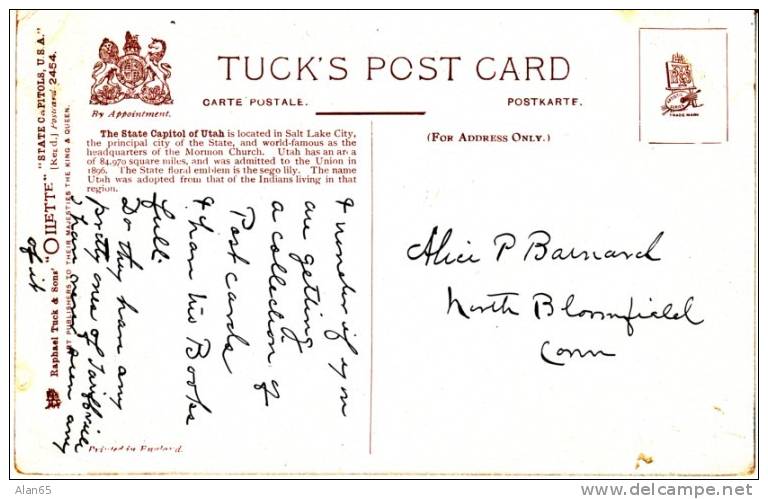 TUCK'S POST CARD
CARTE POSTALE.
POSTKARTE.
By Appointment.
(FOR ADDRESS ONLY.)
TRADE MARK
The State Capitol of Utah is located in Salt Lake City,
the principal city of the State, and world-famous as the
headquarters of the Mormon Church. Utah has an area
of 84,970 square miles, and was admitted to the Union in
1896. The State floral emblem is the sego lily. The name
Utah was adopted from that of the Indians living in that
region.
Raphael Tuck & Sons' "OILETTE" "STATE CAPITOLS, U.S.A."
[Regd.] Postcard 2454.
ART PUBLISHERS TO THEIR MAJESTIES THE KING & QUEEN.
I wonder if you
are getting
a collection of
Postcards
I have two Books
full.
Do they have any
pretty ones of Tariffville
I have never seen any
of it
Alice P Barnard
North Bloomfield
Conn
Printed in England.
Alan65
http://www.delcampe.net